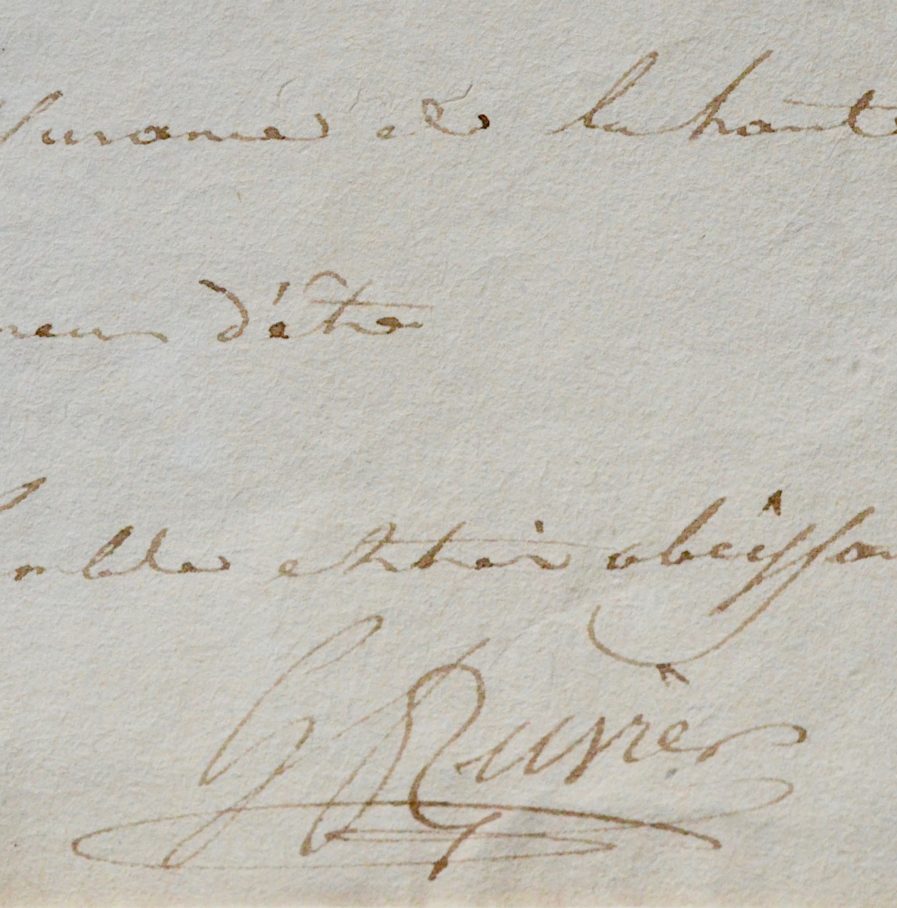 ssurance de la haute
neur d'être
mble et très obéissan
G Cuvier